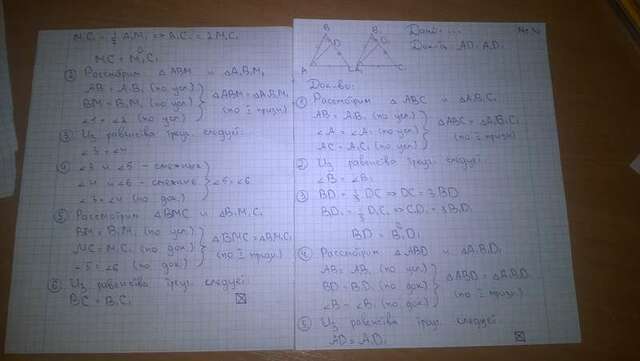 MC₁ = ½ A₁M₁ ⇒ A₁C₁ = 2M₁C₁
MC = M₁C₁
② Рассмотрим △ABM и △A₁B₁M₁
AB = A₁B₁ (по усл)
BM = B₁M₁ (по усл)
∠1 = ∠2 (по усл)
△ABM = △A₁B₁M₁
(по I призн)
③ Из равенства треуг. следует:
∠3 = ∠4
④ ∠3 и ∠5 - смежных
∠4 и ∠6 - смежные
∠3 = ∠4 (по док.)
∠5 = ∠6
⑤ Рассмотрим △BMC и △B₁M₁C₁
BM = B₁M₁ (по усл.)
MC = M₁C₁ (по док.)
∠5 = ∠6 (по док)
△BMC = △B₁M₁C₁
(по I призн)
⑥ Из равенства треуг. следует
BC = B₁C₁
B B
D D
A A C
Дано: ...
Док-ть: AD = A₁D₁
Док-во:
① Рассмотрим △ABC и △A₁B₁C₁
AB = A₁B₁ (по усл)
∠A = ∠A₁ (по усл)
AC = A₁C₁ (по усл)
△ABC = △A₁B₁C₁
(по I призн)
② Из равенства треуг. следует
∠B = ∠B₁
③ BD = ⅓ DC ⇒ DC = 3BD
BD₁ = ⅓ D₁C₁ ⇒ C₁D₁ = 3B₁D₁
BD = B₁D₁
④ Рассмотрим △ABD и △A₁B₁D₁
AB = A₁B₁ (по усл)
BD = B₁D₁ (по док)
∠B = ∠B₁ (по док)
△ABD = △A₁B₁D₁
(по I призн)
⑤ Из равенства треуг. следует
AD = A₁D₁